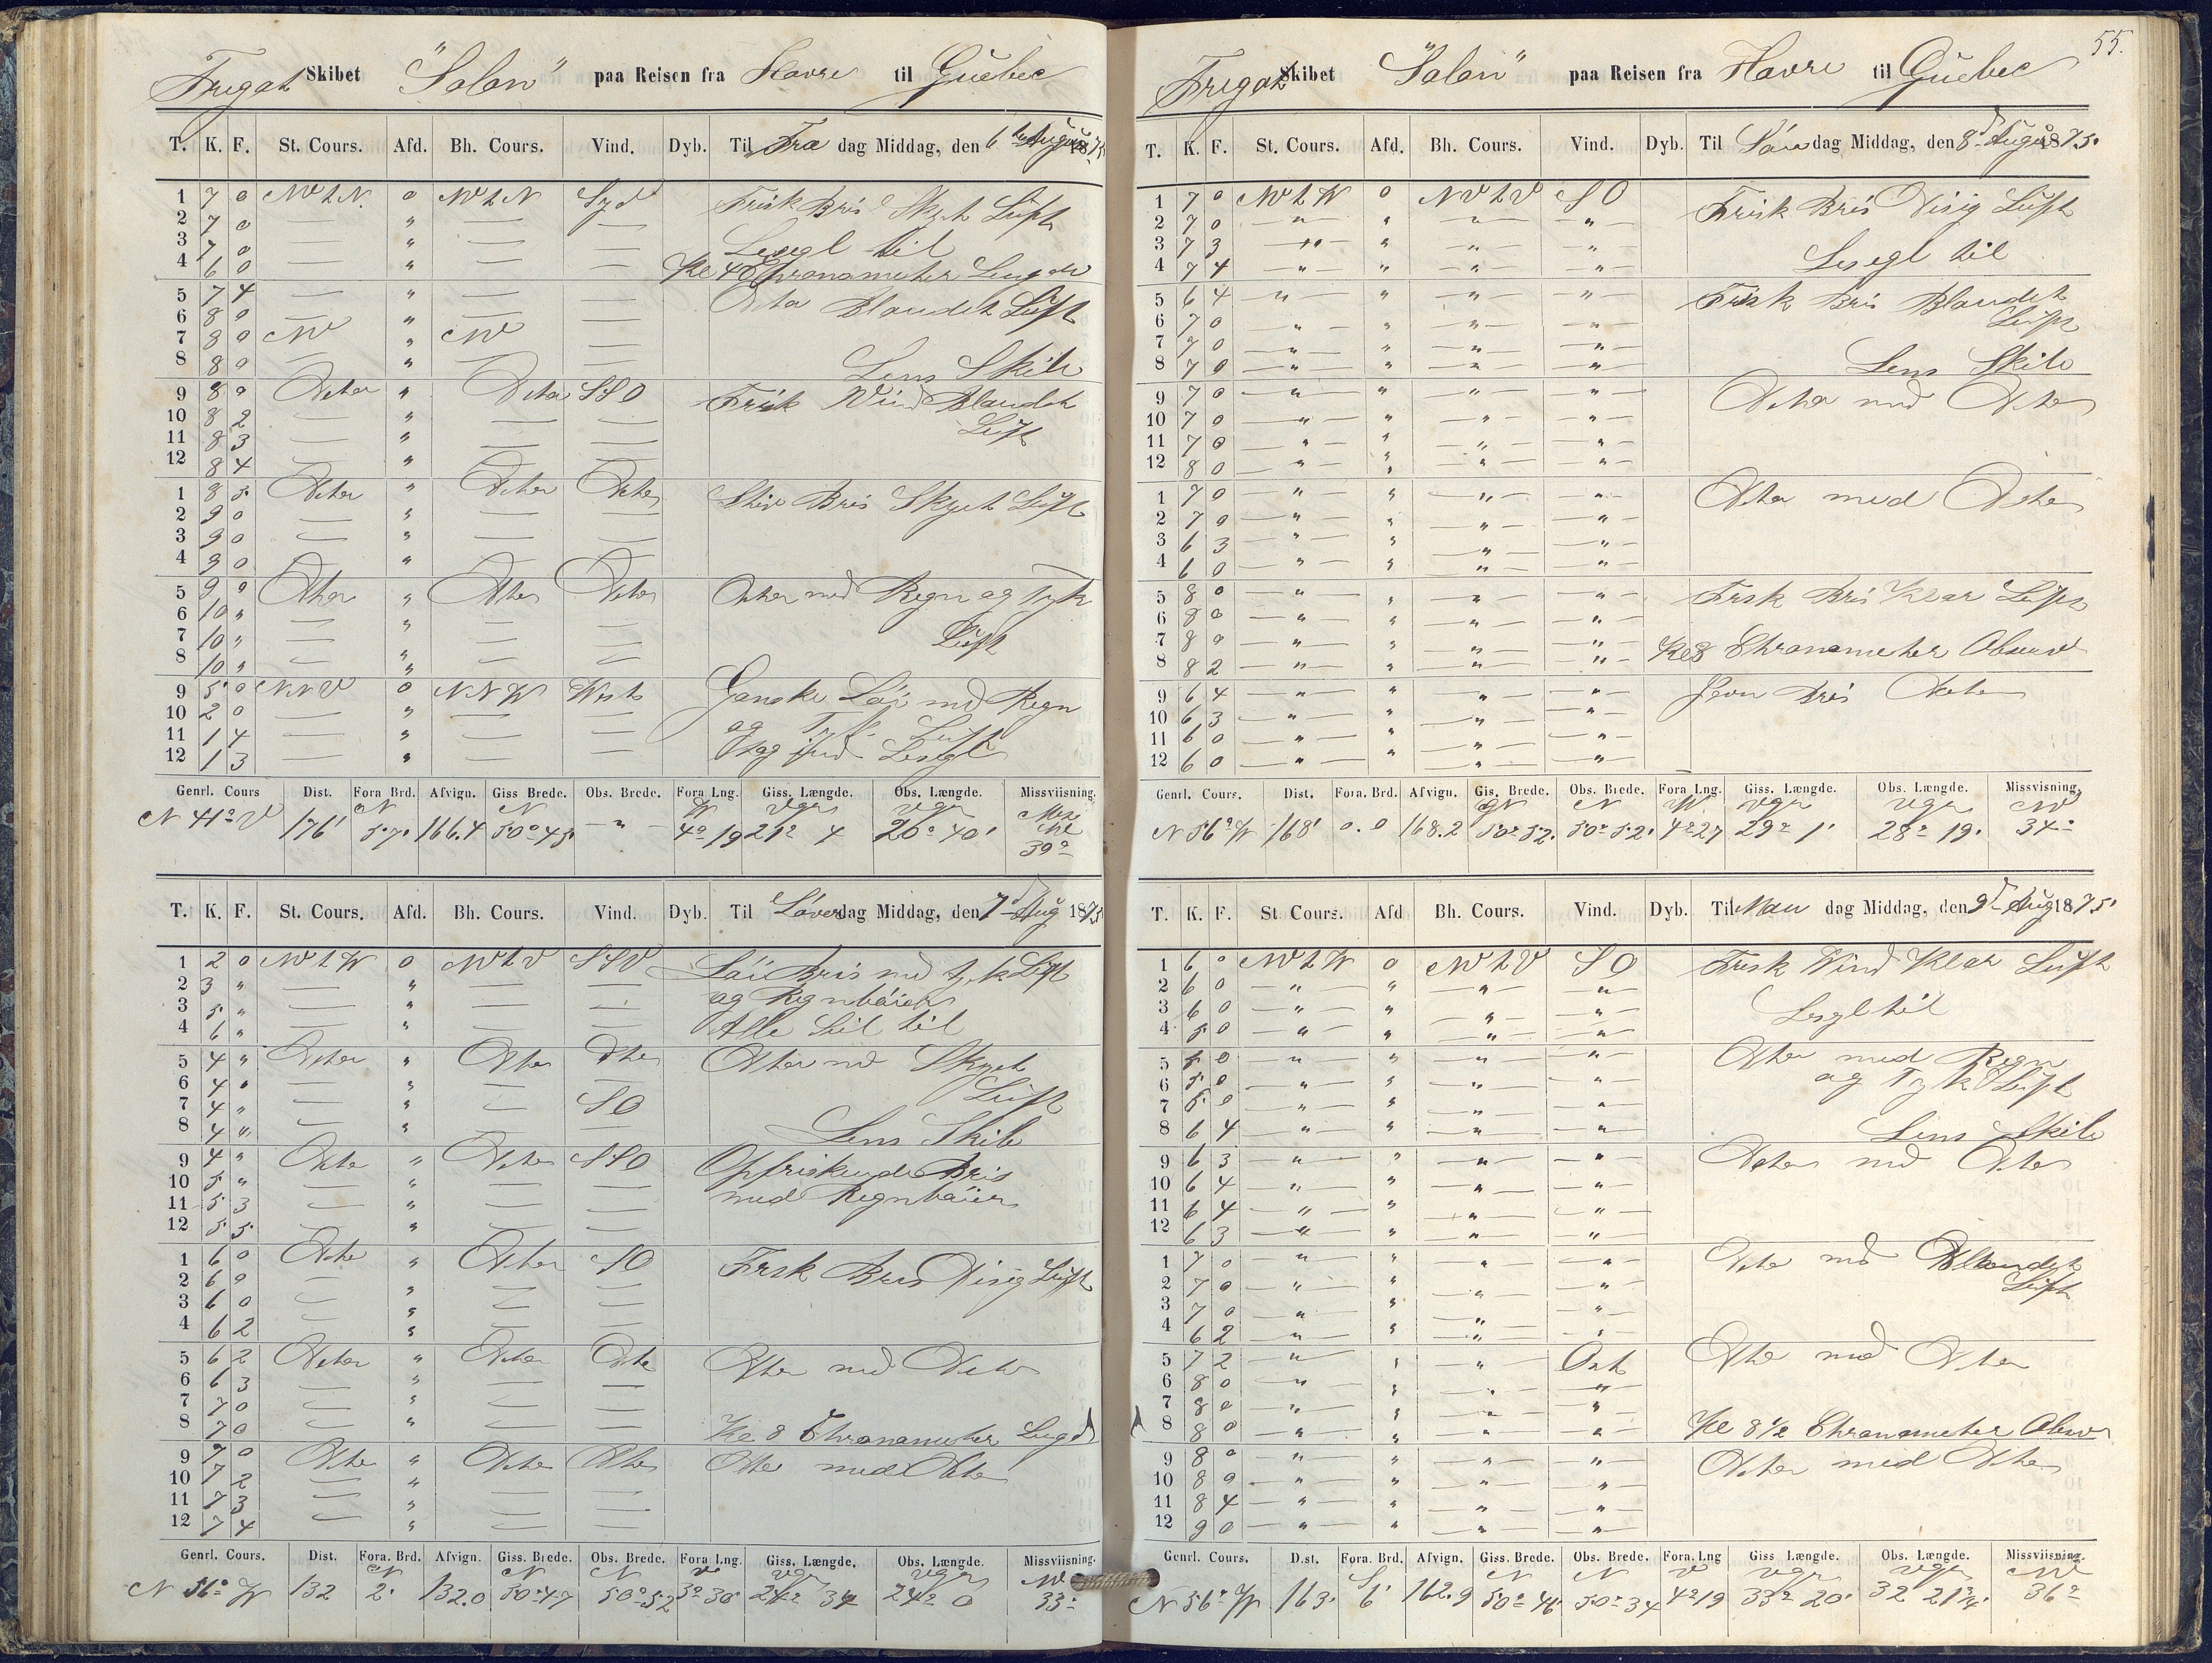 Fregat Skibet "Solon" paa Reisen fra Havre til Quebec
T. K. F. St. Cours. Afd. Bh. Cours. Vind. Dyb. Til Fre dag Middag, den 6 August 1875
1 7 0 NW t N. 0 NW t N Syd Frisk Bris Skyet Luft
2 7 0 — " — —
3 7 0 — " — — Lesegl til
4 6 0 — " — — Kl 4 Chronometer Lengde
5 7 4 — " — — Blandet Luft
6 8 0 — " — —
7 8 0 NW " NW —
8 8 0 — " — — Lens Skib
9 8 0 Ditto " Ditto SSO Frisk Vind Blandet
10 8 2 — " — — Luft
11 8 3 — " — —
12 8 4 — " — —
1 8 5 Ditto " Ditto Ditto Stiv Bris Skyet Luft
2 9 0 — " — —
3 9 0 — " — —
4 9 0 — " — —
5 9 0 Ditto " Ditto Ditto Ditto med Regn og Tyk
6 10 " — " — —
7 10 " — " — — Luft
8 10 " — " — —
9 5 0 NNV 0 NNW West Ganske Løi med Regn
10 2 0 — " — — og Tyk Luft
11 1 4 — " — — Lesegl
12 1 3 — " — —
Genrl. Cours Dist. Fora Brd. Afvign. Giss Brede. Obs. Brede. Fora Lng. Giss. Længde. Obs. Længde. Missviisning.
N 41° V 176' N 57' 166.4 N 50° 45' - " - W 4° 19 Vgr 21° 4 Vgr 20° 40' 39°
T. K. F. St. Cours. Afd. Bh. Cours. Vind. Dyb. Til Løver dag Middag, den 7 Aug 1875
1 2 0 NW t W 0 NW t V SSV Løi Bris med tyk Luft
2 3 " — " — — og Regnbøier
3 5 " — " — —
4 6 " — " — — Alle Seil til
5 4 " Ditto " Ditto Ditto Ditto med Skyet
6 4 " — " — — Luft
7 4 " — " — SO
8 4 " — " — — Lens Skib
9 4 " Ditto " Ditto SSO Opfriskende Bris
10 5 " — " — — med Regnbøier
11 5 3 — " — —
12 5 5 — " — —
1 6 0 Ditto " Ditto SO Frisk Bris Disig Luft
2 6 0 — " — —
3 6 0 — " — —
4 6 2 — " — —
5 6 2 Ditto " Ditto Ditto Ditto med Ditto
6 6 3 — " — —
7 7 0 — " — —
8 7 0 — " — — Kl 8 Chronometer Lengd
9 7 0 Ditto " Ditto Ditto Ditto med Ditto
10 7 2 — " — —
11 7 3 — " — —
12 7 4 — " — —
Genrl. Cours. Dist. Fora. Brd. Afvign. Giss. Brede. Obs. Brede. Fora Lng. Giss. Længde. Obs. Længde. Missviisning.
N 56° W 132 N 2' 132.0 N 50° 47 N 50° 52 V 3° 30' Vgr 24° 34 Vgr 24° 0 NW 33°
55.
Fregat Skibet "Solon" paa Reisen fra Havre til Quebec
T. K. F. St. Cours. Afd. Bh. Cours. Vind. Dyb. Til Søn dag Middag, den 8 August 1875.
1 7 0 NW t W 0 NV t V SO Frisk Bris Disig Luft
2 7 0 " " " "
3 7 3 " " " " Lesegl til
4 7 4 " " " "
5 6 4 " " " " Frisk Bris Blandet
6 7 0 " " " " Luft
7 7 0 " " " "
8 7 0 " " " " Lens Skib
9 7 0 " " " " Ditto med Ditto
10 7 0 " " " "
11 7 0 " " " "
12 8 0 " " " "
1 7 0 " " " " Ditto med Ditto
2 7 0 " " " "
3 6 3 " " " "
4 6 0 " " " "
5 8 0 " " " " Frisk Bris Klar Luft
6 8 0 " " " "
7 8 0 " " " " Kl 8 Chronometer Observ
8 8 2 " " " "
9 6 4 " " " " Jevn Bris Ditto
10 6 3 " " " "
11 6 0 " " " "
12 6 0 " " " "
Genrl. Cours. Dist. Fora. Brd. Afvign. Gis. Brede. Obs. Brede. Fora Lng. Giss. Længde. Obs. Længde. Missviisning
N 56° W 168' 0.0 168.2 N 50° 52' N 50° 52' W 4° 27 Vgr 29° 1' Vgr 28° 19' NW 34°
T. K. F. St Cours. Afd Bh. Cours. Vind. Dyb. Til Man dag Middag, den 9 Aug 1875
1 6 0 NW t W 0 NW t V SO Frisk Vind Klar Luft
2 6 0 " " " "
3 6 0 " " " " Lesgl til
4 5 0 " " " "
5 5 0 " " " " Ditto med Regn
6 5 0 " " " " og Tyk Luft
7 5 0 " " " "
8 6 4 " " " " Lens Skib
9 6 3 " " " " Ditto med Ditto
10 6 4 " " " "
11 6 4 " " " "
12 6 3 " " " "
1 7 0 " " " " Ditto med Blandet
2 7 0 " " " " Luft
3 7 0 " " " "
4 6 2 " " " "
5 7 2 " " " Ost Ditto med Ditto
6 8 0 " " " "
7 8 0 " " " "
8 8 0 " " " " Kl 8 1/2 Chronometer Observ
9 8 0 " " " " Ditto med Ditto
10 8 0 " " " "
11 8 4 " " " "
12 9 0 " " " "
Genrl. Cours. Dist. Fora. Brd. Afvign. Giss. Brede. Obs. Brede. Fora. Lng Giss Længde. Obs. Længde. Missviisning.
N 56° W 163' S 6' 162.9 N 50° 46' N 50° 34 V 4° 19 Vgr 33° 20' Vgr 32 21 1/4' NW 36°